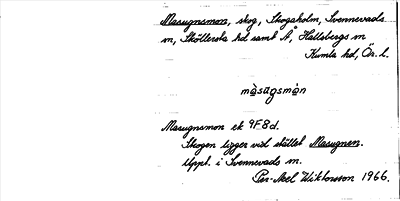 Masugnsmon, skog, Skogaholm, Svennevads
sn, Sköllersta hd samt Å, Hallsbergs sn
Kumla hd, Ör. l.
màsuġsmón
Masugnsmon ek 9F8d.
Skogen ligger vid stället Masugnen.
Uppt. i Svennevads sn.
Per-Axel Wiktorsson 1966.